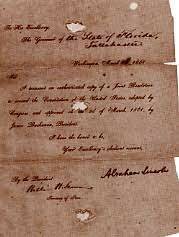 To His Excellency
The Governor of the State of Florida,
Tallahassee
Washington, March 1861
Sir
I transmit an authenticated copy of a Joint Resolution
to amend the Constitution of the United States, adopted by
Congress and approved on the 2d of March, 1861, by
James Buchanan, President.
I have the honor to be,
Your Excellency's obedient servant,
Abraham Lincoln
By the President
Secretary of State